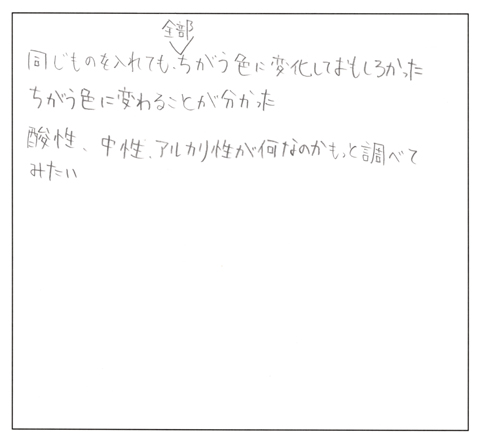 全部
同じものを入れても、ちがう色に変化しておもしろかった
ちがう色に変わることが分かった
酸性、中性、アルカリ性が何なのかもっと調べて
みたい